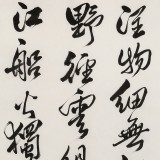 潤物細無
野徑雲俱
江船火獨